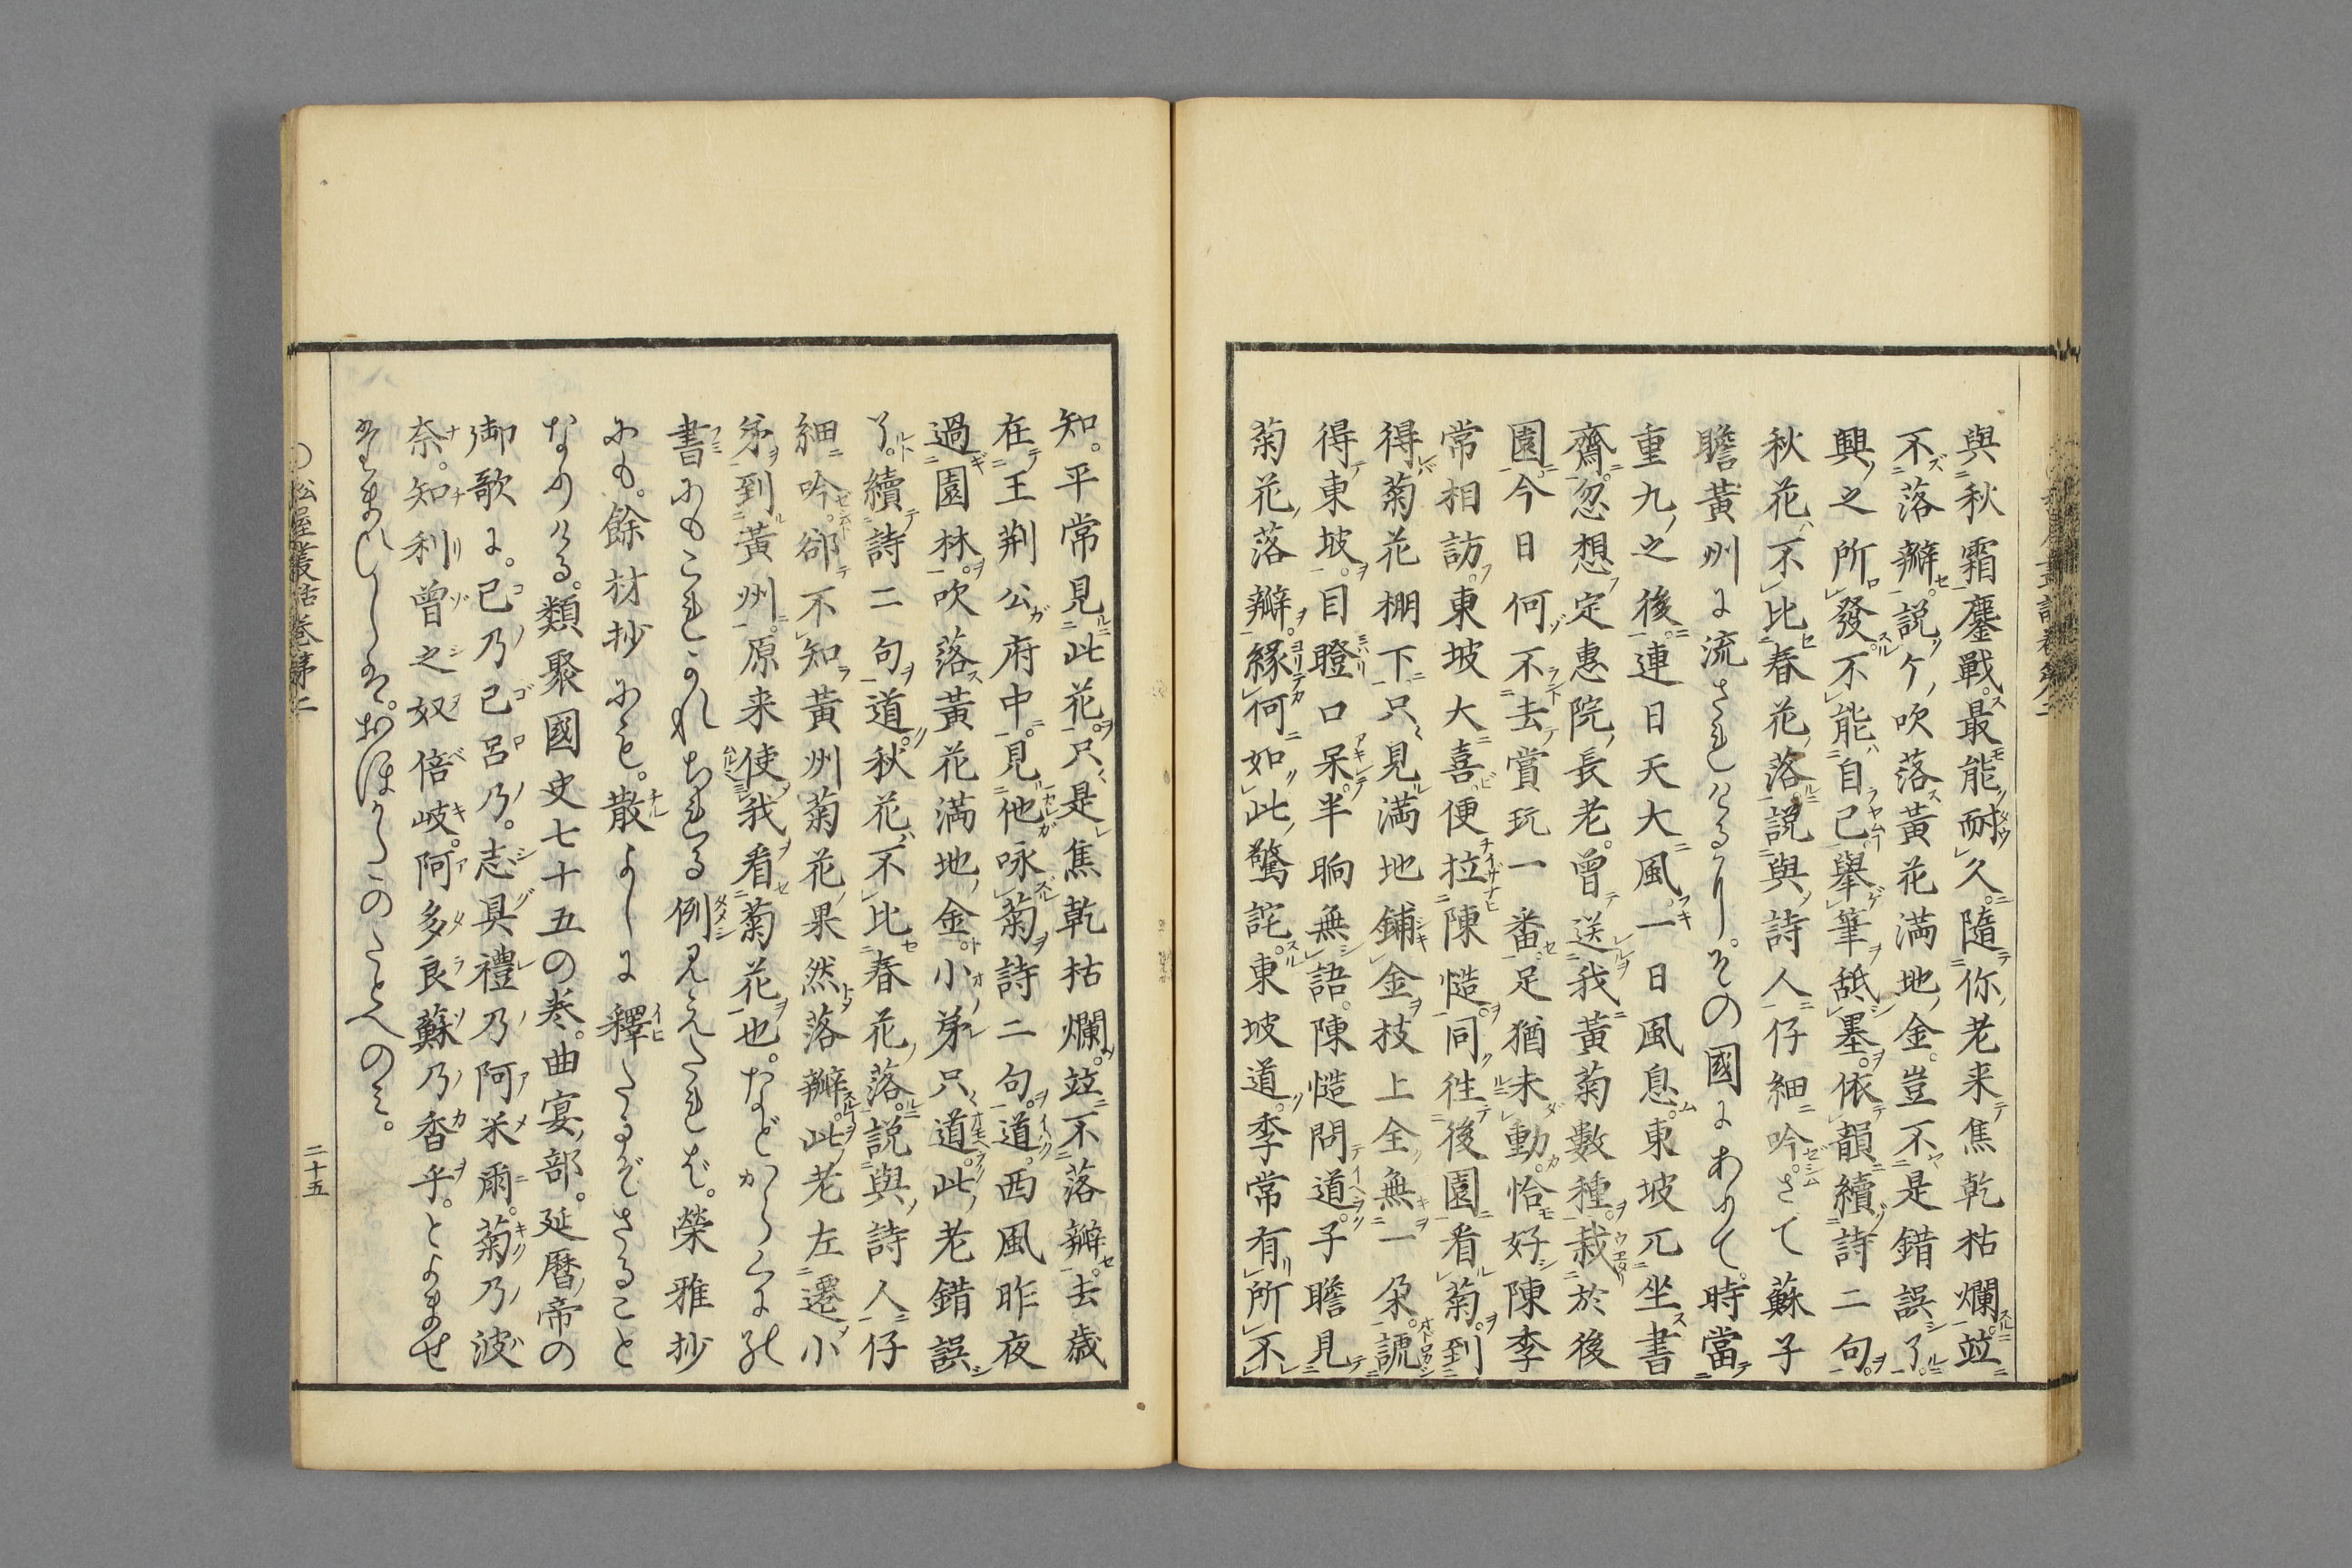 與秋霜鏖戰。最能耐久。隨你老来焦乾枯爛。竝
不落瓣。説ケ吹落黃花満地金。豈不是錯誤了。
興之所發。不能自已。舉筆舐墨。依韻續詩二句。
秋花不比春花落。説與詩人仔細吟。さて蘇子
瞻黃州に流されけるに。その國にありて。時當
重九之後。連日天大風。一日風息。東坡兀坐書
齋。忽想定惠院長老。曾送我黃菊數種。栽於後
園。今日何不去賞玩一番。足猶未動。恰好陳季
常相訪。東坡大喜。便拉陳慥。同往後園看菊。到
得菊花棚下。只見満地鋪金。枝上全無一朶。諕
得東坡。目瞪口呆。半晌無語。陳慥問道。子瞻見
菊花落瓣。緣何如此驚詫。東坡道。季常有所不
知。平常見此花。只是焦乾枯爛。竝不落瓣。去歳
在王荆公府中。見他咏菊詩二句。道。西風昨夜
過園林。吹落黃花満地金。小弟只道。此老錯誤
了。續詩二句道。秋花不比春花落。説與詩人仔
細吟。卻不知黃州菊花。果然落瓣。此老左遷小
弟到黃州。原来使我看菊花也。など
書にもこれかれちれる例見えたれば。榮雅抄
にも。餘材抄にも。散よしに釋たるぞさること
なりける。類聚國史七十五の巻。曲宴部。延暦帝の
御歌に。己乃己呂乃。志具禮乃阿米爾。菊乃波
奈。知利曾之奴倍岐。阿多良蘇乃香乎。とよませ
たまへの。
松屋叢話巻第二
二十五